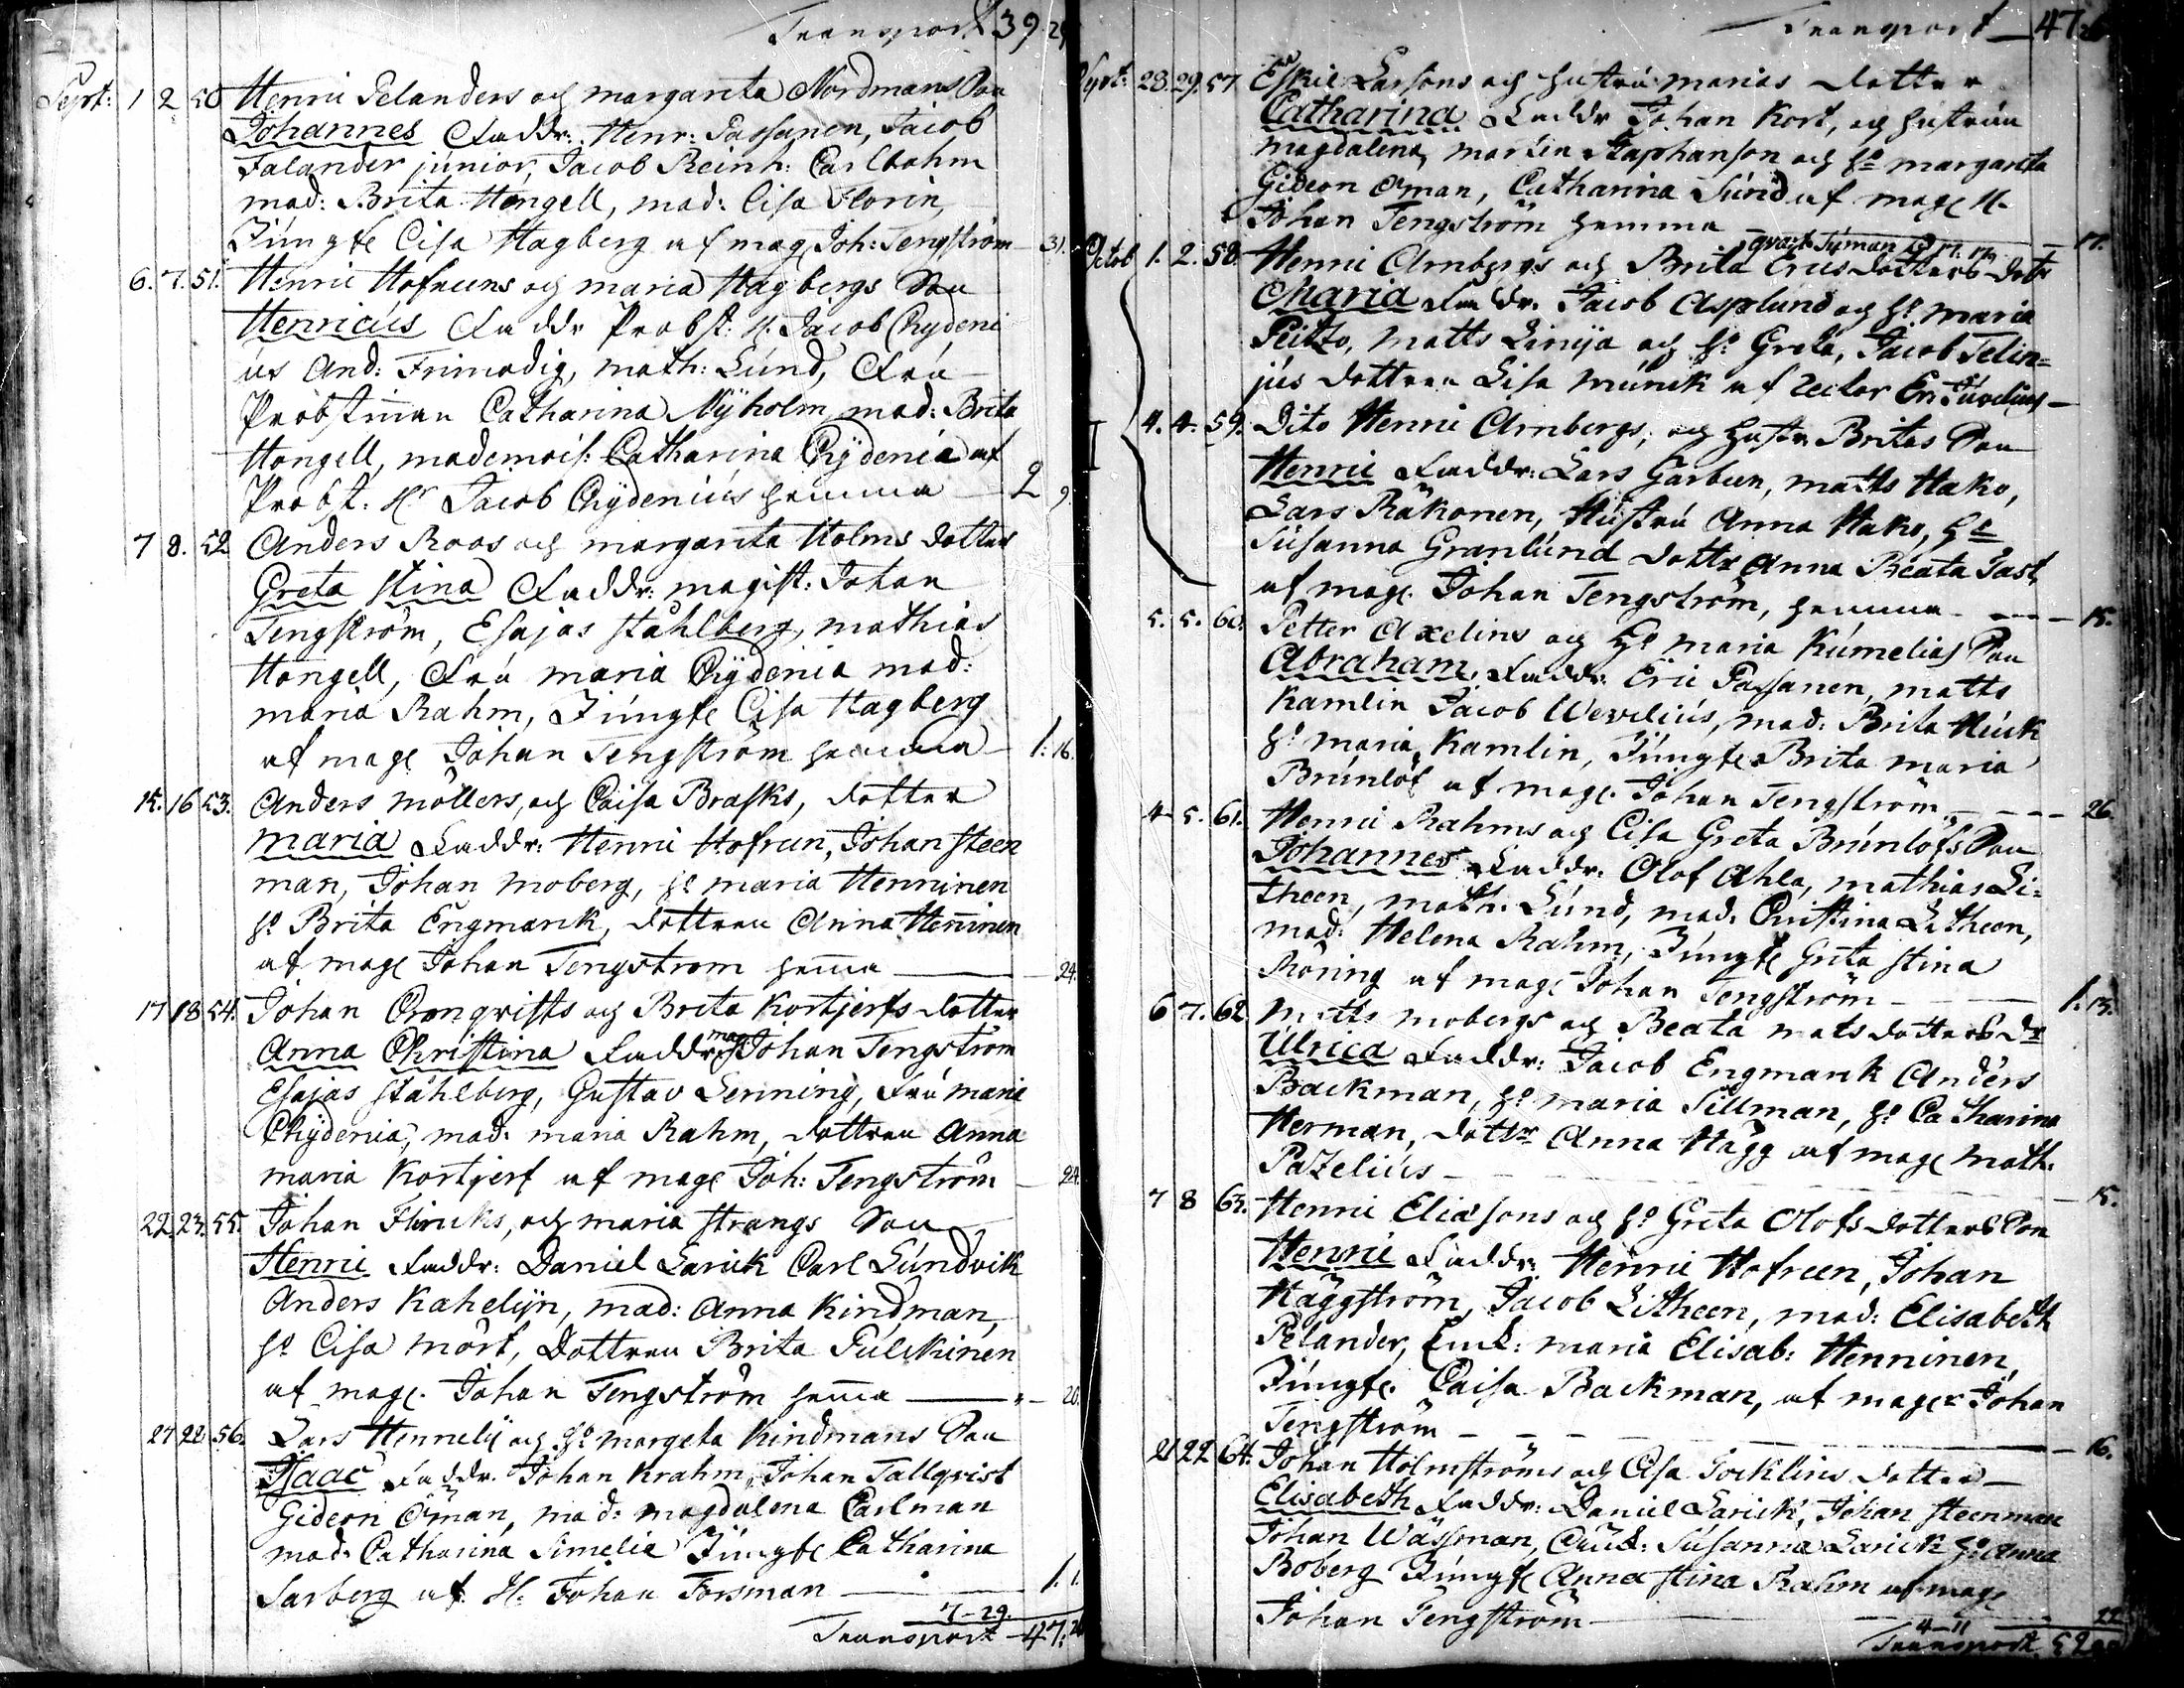 Transport 39.29
Sept: 1 2 50 Henric Pelanders och margareta Nordmans Son
Johannes Faddr: Henr: Passanen, Jacob
Falander junior, Jacob Reinh: Carlbohm
mad: Brita Hongell, mad: Lisa Florin,
Jungfr Lisa Hagberg af mag Joh: Tengström 31.
6. 7. 51. Henric Hofreens och maria Hagbergs Son
Henricus Faddr Probst: H. Jacob Chydeni
us And: Frimodig, math: Lund, Fru
Probstinnan Catharina Nyholm mad: Brita
Hongell, mademois: Catharina Chydenia af
Probst: Hr Jacob Chydenius hemma 2 9
7 8. 52 Anders Roos och margareta Holms dotter
Greta Stina Faddr: magist: Johan
Tengström, Esajas Ståhlberg, mathias
Hongell, Fru maria Chydenia mad:
maria Rahm, Jungfr Lisa Hagberg
af mag Johan Tengström hemma 1:16.
15. 16 53. Anders möllers, och Caisa Brasks, dotter
maria Faddr: Henric Hofreen, Johan Steen
man, Johan moberg, h: maria Henninen
h: Brita Engmarck, dottren Anna Henninen
af mag Johan Tengstrom hemma 24.
17 18 54. Johan Örnqvists och Brita Kortjerfs dotter
Anna Christina Faddr: mag Johan Tengstrom
Esajas Ståhlberg, Gustav Lenning, Fru maria
Chydenia, mad: maria Rahm, dottren Anna
maria Kortjerf af mag Joh: Tengström 24.
22. 23. 55. Johan Flincks, och maria Strangs Son
Henric Faddr: Daniel Larick Carl Lundvik
Anders Kahelyn, mad: Anna Kindman,
h: Lisa mört, Dottren Brita Pulckinen
af mag. Johan Tengström hemma 20.
27 28 56. Lars Hennely och h: margeta Kindmans Son
Isaac Faddr. Johan Krahm, Johan Tallqvist
Gideon Öman, mad: magdalena Carlman
mad: Catharina Simelia Jungfr Catharina
Sarberg af H. Johan Forsman 1. 1.
7-29.
Transport 47:
Transport 47:
Sept: 28. 29. 57 Eskil Larsons och hustru marias dotter
Catharina Faddr Johan Kort, och hustrun
magdalena, martin Staphanson och h: margareta
Gideon Öman, Catharina Sund af mag H.
Johan Tengström hemma 17.
Octob 1. 2. 58. Henric Arnbergs och Brita Ericsdotters dotr
Maria Faddr. Jacob Asplund och h: maria
Peitzo, matts Linija och h: Greta, Jacob Telin=
jus dottren Lisa munck af rector Er: Juvelius
4. 4. 59. Dito Henric Arnbergs, och hustr Britas Son
Henric Faddr: Lars Garbeen, matts Hako,
Lars Räkonen, Hustru Anna Hako, h:
Susanna Granlund dottr Anna Beata Jast
af mag. Johan Tengström, hemma 15.
5. 5. 60. Petter Axelins och h: maria Kumelias Son
Abraham, Faddr: Eric Passanen, matts
Kamlin Jacob Wevelius, mad: Brita Huck
h: maria Kamlin, Jungfr Brita maria
Brunlöf af mag. Johan Tengström 26.
4 5. 61. Henric Rahms och Lisa Greta Brunlöfs Son
Johannes Faddr. Olof Ahla, mathias Li=
theen, math: Lund, mad: Christina Litheen,
mad: Helena Rahm, Jungfr Greta Stina
Röring af mag: Johan Tengström 1. 13.
6 7. 62 Matts mobergs och Beata matsdotters Dr
Ulrica Faddr: Jacob Engmarck Anders
Backman, h: maria Sillman, h: Catharina
Herman, dottr Anna Hägg af mag math.
Pazelius 15.
7 8 63. Henric Eliasons och h: Greta Olofsdotters Son
Henric Faddr: Henric Hofreen, Johan
Häggström, Jacob Litheen, mad: Elisabeth
Pelander, maria Elisab: Henninen,
Jungfr. Caisa Backman, af mag: Johan
Tengström 16.
21 22 64. Johan Holmströms och Lisa Socklins dotter
Elisabeth Faddr: Daniel Larick, Johan Steenman
Johan Wässman, Susanna Larick h: Anna
Boberg Jungfr Anna Stina Rahm af mag
Johan Tengström 22
4-11
Transport 52